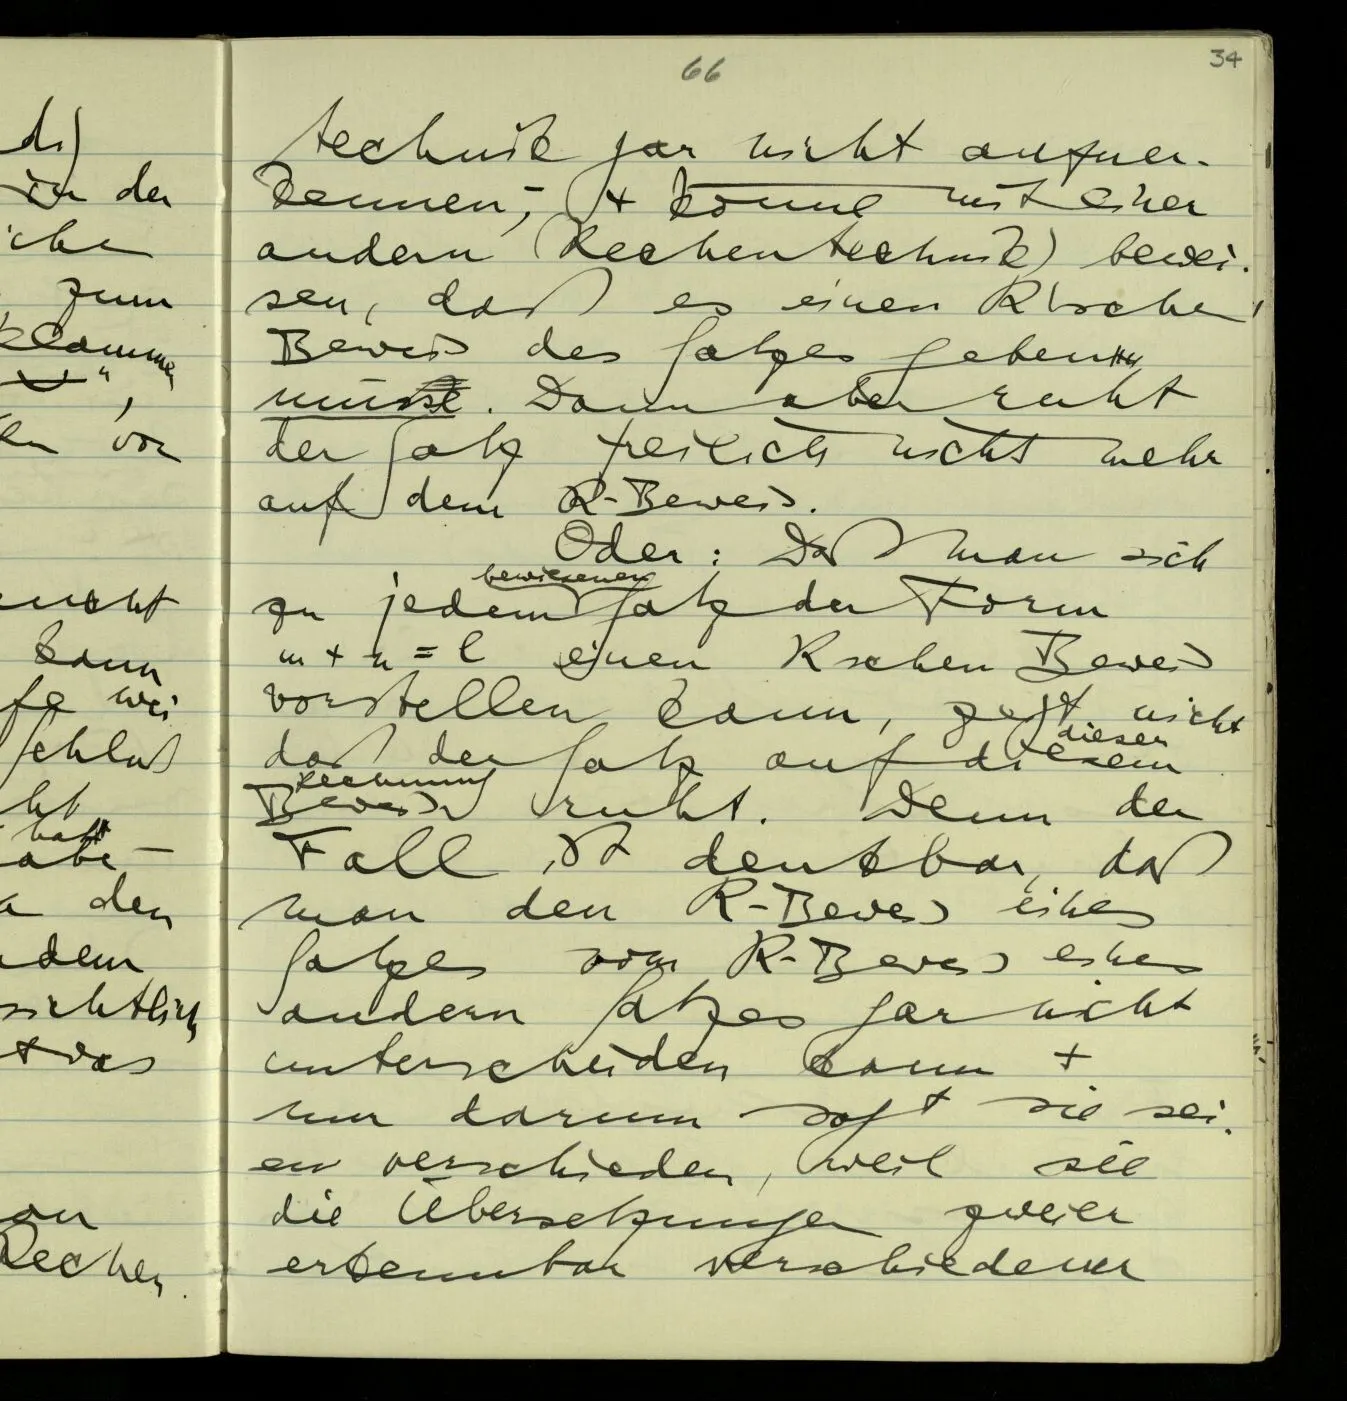 66
34
technik gar nicht aufzuer-
kennen; + könne mit einer
andern (Rechentechnik) bewei-
sen, daß es einen R'schen
Beweis des Satzes geben
müsse. Dann aber ruht
der Satz freilich nicht mehr
auf dem R-Beweis.
Oder: Daß man sich
bewiesenen
zu jedem Satz der Form
m + n = l einen Rschen Beweis
vorstellen kann, zeigt nicht
dieser
daß der Satz auf diesem
Rechnung
Beweis ruht. Denn der
Fall ist denkbar, daß
man den R-Beweis eines
Satzes vom R-Beweis eines
andern Satzes gar nicht
unterscheiden kann +
nur darum sagt sie sei-
en verschieden, weil sie
die Übersetzungen zweier
erkennbar verschiedener
di)
in der
zum
von
kann
Schluß
hat
den
sichtlich